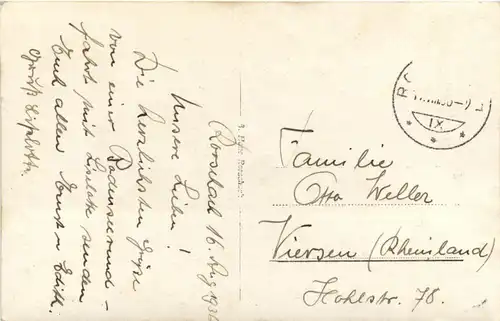 Rorschach 16. Aug. 1936
Unsere Lieben!
Die herzlichsten Grüße
von einer Bodenseerund-
fahrt mit Liselotte senden
Euch allen Ernst u Edith.
Gruß Liselotte.
Familie
Otto Weller
Viersen (Rheinland)
Hohlstr. 78.
IX